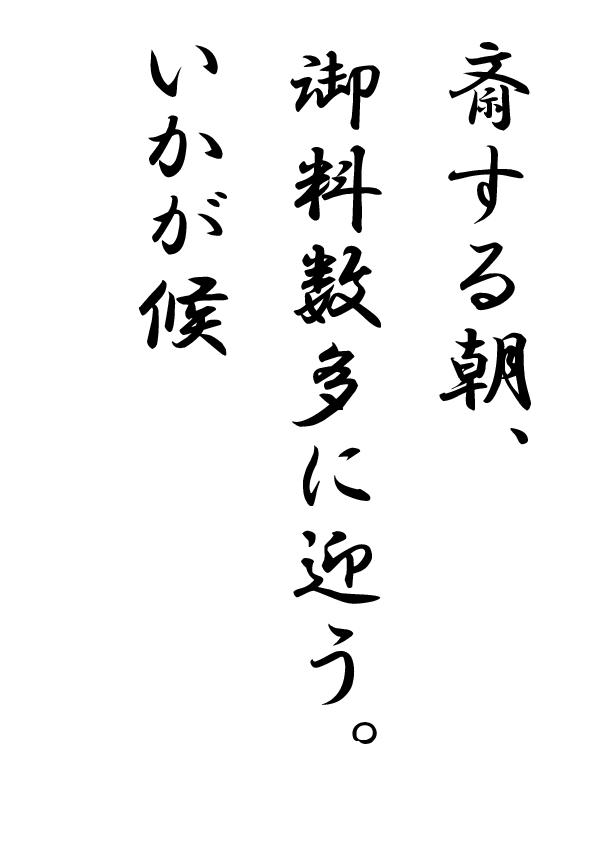 斎する朝、
御料数多に迎う。
いかが候